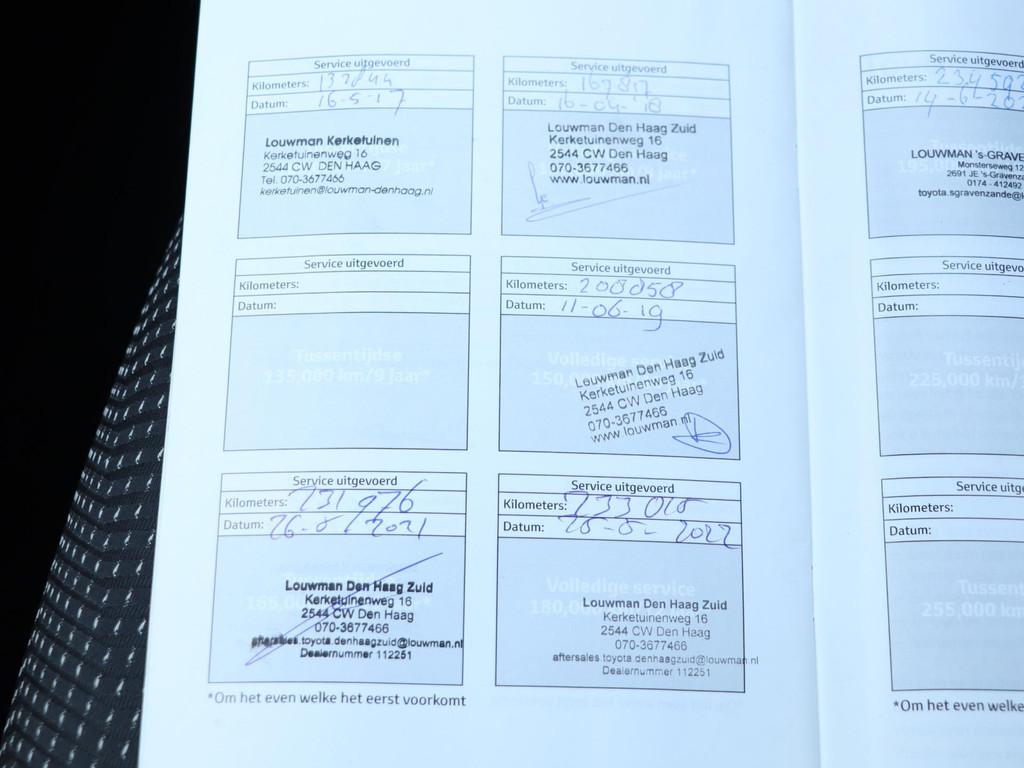 Service uitgevoerd
Kilometers: 132844
Datum: 16-5-17
Louwman Kerketuinen
Kerketuinenweg 16
2544 CW DEN HAAG
Tel. 070-3677466
kerketuinen@louwman-denhaag.nl
Service uitgevoerd
Kilometers: 167817
Datum: 16-04-'18
Louwman Den Haag Zuid
Kerketuinenweg 16
2544 CW Den Haag
070-3677466
www.louwman.nl
Service uitgevoerd
Kilometers:
Datum:
Tussentijdse
135,000 km/9 jaar*
Service uitgevoerd
Kilometers: 200858
Datum: 11-06-19
Volledige
150,0
Louwman Den Haag Zuid
Kerketuinenweg 16
2544 CW Den Haag
070-3677466
www.louwman.nl
Service uitgevoerd
Kilometers: 231976
Datum: 26-8/2021
165,0
Louwman Den Haag Zuid
Kerketuinenweg 16
2544 CW Den Haag
070-3677466
aftersales.toyota.denhaagzuid@louwman.nl
Dealernummer 112251
Service uitgevoerd
Kilometers: 233018
Datum: 2022
Volledige service
180,0
Louwman Den Haag Zuid
Kerketuinenweg 16
2544 CW Den Haag
070-3677466
aftersales.toyota.denhaagzuid@louwman.nl
Dealernummer 112251
*Om het even welke het eerst voorkomt
Service uitgevoerd
Kilometers: 234592
Datum: 14-6-20
LOUWMAN 's-GRAVE
Monsterseweg 12
2691 JE 's-Gravenza
0174 - 412492
toyota.sgravenzande@l
Service uitgevo
Kilometers:
Datum:
Tussentij
225,000 km/
Service uitge
Kilometers:
Datum:
Tussenti
255,000 km
*Om het even welke